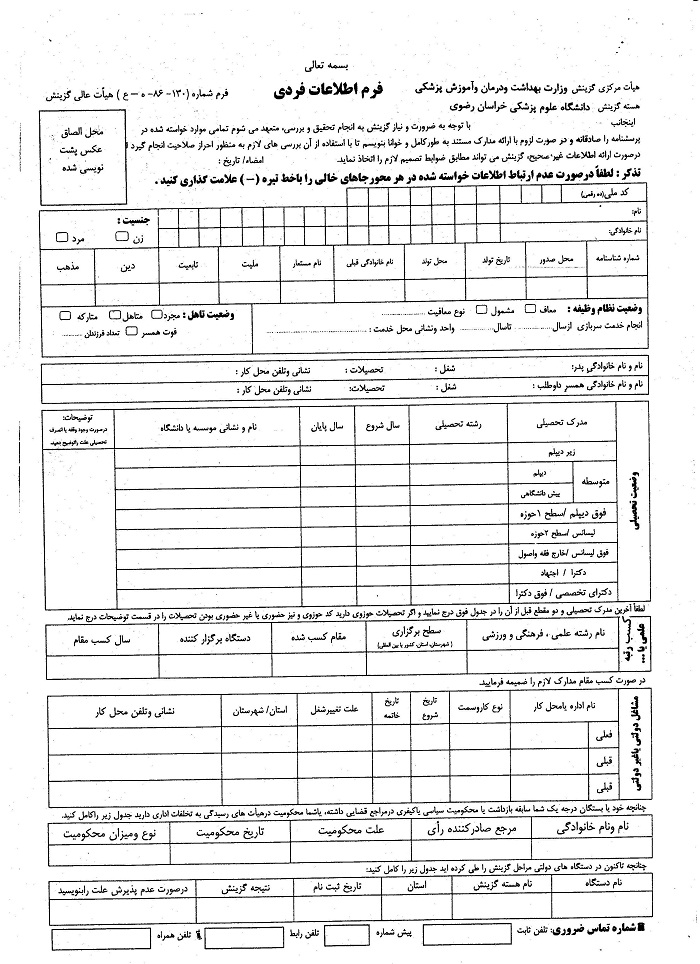 بسمه تعالی
هیأت مرکزی گزینش وزارت بهداشت ودرمان وآموزش پزشکی
فرم اطلاعات فردی
فرم شماره (۱۳۰- ۸۶- ه – ع ) هیأت عالی گزینش
هسته گزینش دانشگاه علوم پزشکی خراسان رضوی
محل الصاق
عکس پشت
نویسی شده
اینجانب با توجه به ضرورت و نیاز گزینش به انجام تحقیق و بررسی، متعهد می شوم تمامی موارد خواسته شده در
پرسشنامه را صادقانه و در صورت لزوم با ارائه مدارک مستند به طورکامل و خوانا بنویسم تا با استفاده از آن بررسی های لازم به منظور احراز صلاحیت انجام گیرد
درصورت ارائه اطلاعات غیر صحیح، گزینش می تواند مطابق ضوابط تصمیم لازم را اتخاذ نماید. امضاء/ تاریخ :
تذکر : لطفاً درصورت عدم ارتباط اطلاعات خواسته شده در هر محورجاهای خالی را باخط تیره ( – ) علامت گذاری کنید .
کد ملی(ده رقمی)
نام:
نام خانوادگی:
جنسیت :
زن مرد
شماره شناسنامه محل صدور تاریخ تولد محل تولد نام خانوادگی قبلی نام مستعار ملیت تابعیت دین مذهب
وضعیت نظام وظیفه : معاف مشمول نوع معافیت ..................
انجام خدمت سربازی ازسال............ تاسال........... واحد ونشانی محل خدمت : ............................
وضعیت تاهل : مجرد متاهل متارکه
فوت همسر تعداد فرزندان ............
نام و نام خانوادگی پدر: شغل : تحصیلات : نشانی وتلفن محل کار :
نام و نام خانوادگی همسر داوطلب : شغل : تحصیلات: نشانی وتلفن محل کار :
وضعیت تحصیلی
مدرک تحصیلی رشته تحصیلی سال شروع سال پایان نام و نشانی موسسه یا دانشگاه توضیحات:
درصورت وجود وقفه یا انصراف
تحصیلی علت راتوضیح دهید.
زیر دیپلم
متوسطه
دیپلم
پیش دانشگاهی
فوق دیپلم /سطح ۱حوزه
لیسانس /سطح ۲حوزه
فوق لیسانس /خارج فقه واصول
دکترا / اجتهاد
دکترای تخصصی / فوق دکترا
لطفاً آخرین مدرک تحصیلی و دو مقطع قبل از آن را در جدول فوق درج نمایید و اگر تحصیلات حوزوی دارید کد حوزوی و نیز حضوری یا غیر حضوری بودن تحصیلات را در قسمت توضیحات درج نماید.
کسب رتبه
علمی یا ...
نام رشته علمی ، فرهنگی و ورزشی سطح برگزاری مقام کسب شده دستگاه برگزار کننده سال کسب مقام
(شهرستان، استان، کشور یا بین المللی)
در صورت کسب مقام مدارک لازم را ضمیمه فرمایید.
مشاغل دولتی یاغیر دولتی
نام اداره یامحل کار نوع کاروسمت تاریخ شروع تاریخ خاتمه علت تغییرشغل استان/ شهرستان نشانی وتلفن محل کار
فعلی
قبلی
قبلی
چنانچه خود یا بستگان درجه یک شما سابقه بازداشت یا محکومیت سیاسی یاکیفری درمراجع قضایی داشته، یاشما محکومیت درهیأت های رسیدگی به تخلفات اداری دارید جدول زیر راکامل کنید.
نام ونام خانوادگی مرجع صادرکننده رأی علت محکومیت تاریخ محکومیت نوع ومیزان محکومیت
چنانچه تاکنون در دستگاه های دولتی مراحل گزینش را طی کرده اید جدول زیر را کامل کنید:
نام دستگاه نام هسته گزینش استان تاریخ ثبت نام نتیجه گزینش درصورت عدم پذیرش علت رابنویسید
شماره تماس ضروری: تلفن ثابت پیش شماره تلفن رابط تلفن همراه